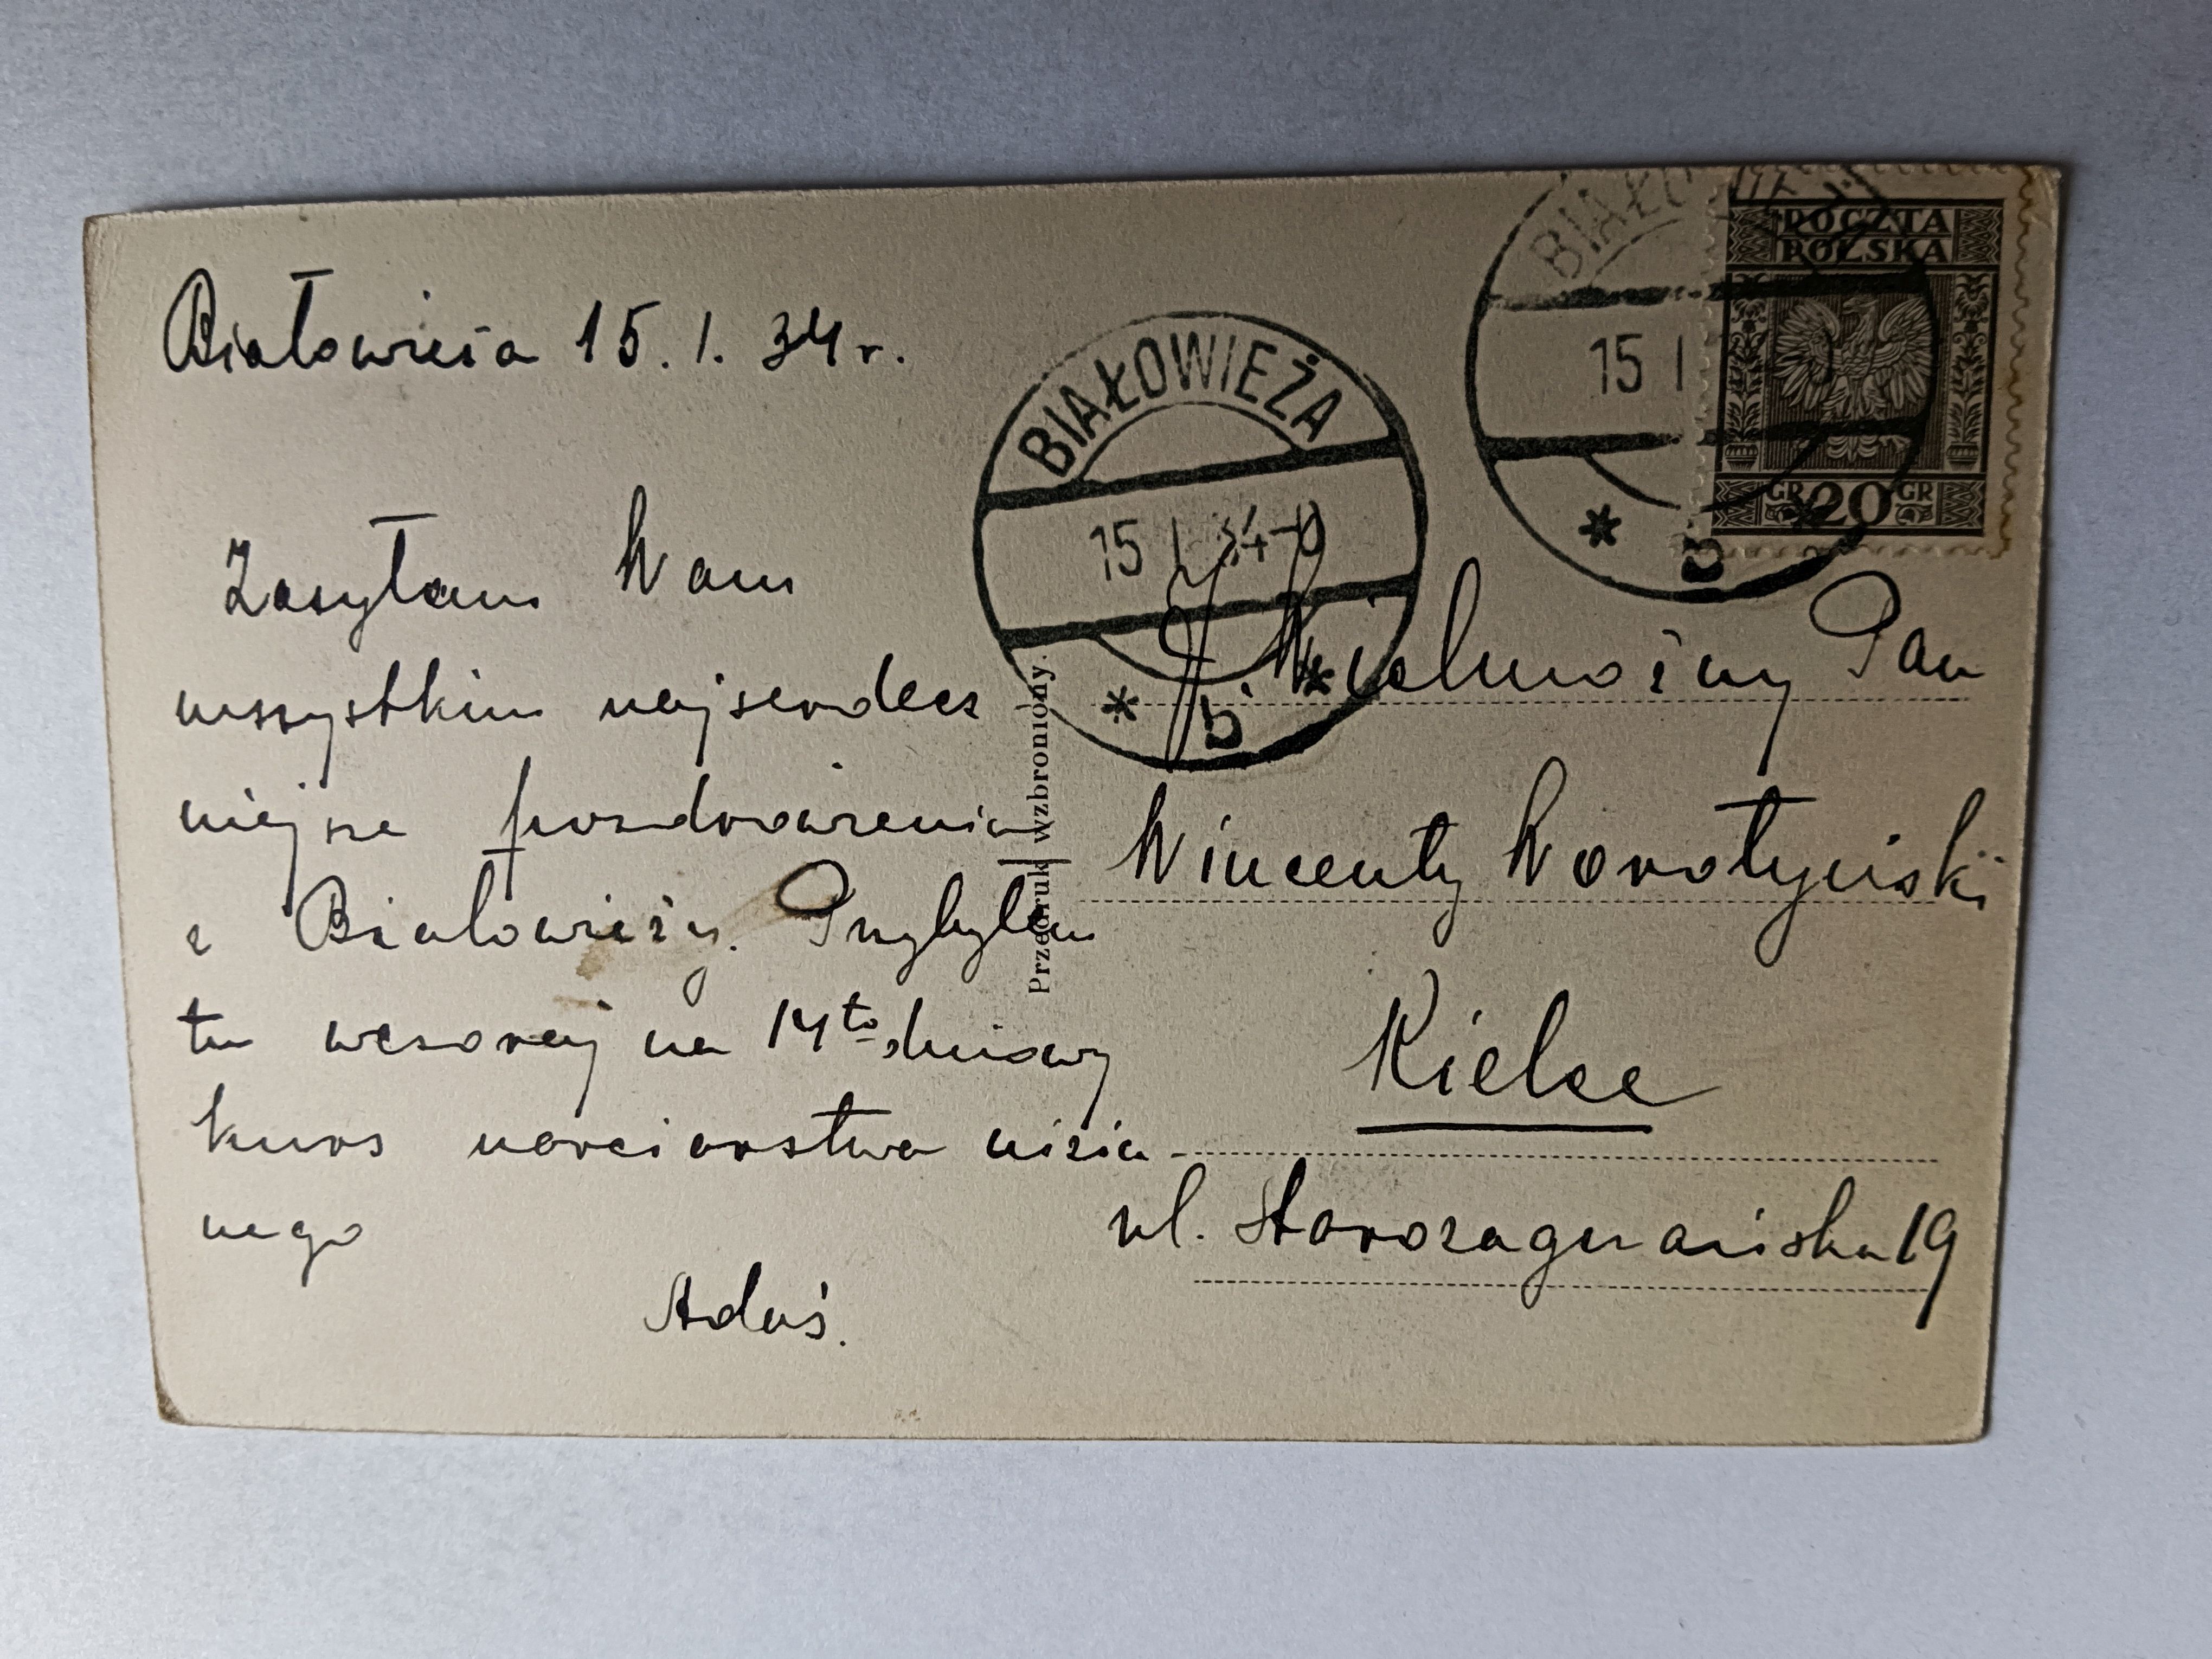 Białowieża 15.I.34 r.
Zasyłam Wam
wszystkim najserdecz
niejsze pozdrowienia
z Białowieży. Przybyłem
tu wczoraj na 14to dniowy
kurs narciarstwa nizin-
nego
Adaś.
Przedruk wzbroniony.
BIAŁOWIEŻA
15 I 34-
b
BIAŁOW
15 I
POCZTA
POLSKA
GR 20 GR
J Wielmożny Pan
Wincenty Worotyński
Kielce
ul. Starozagnańska 19